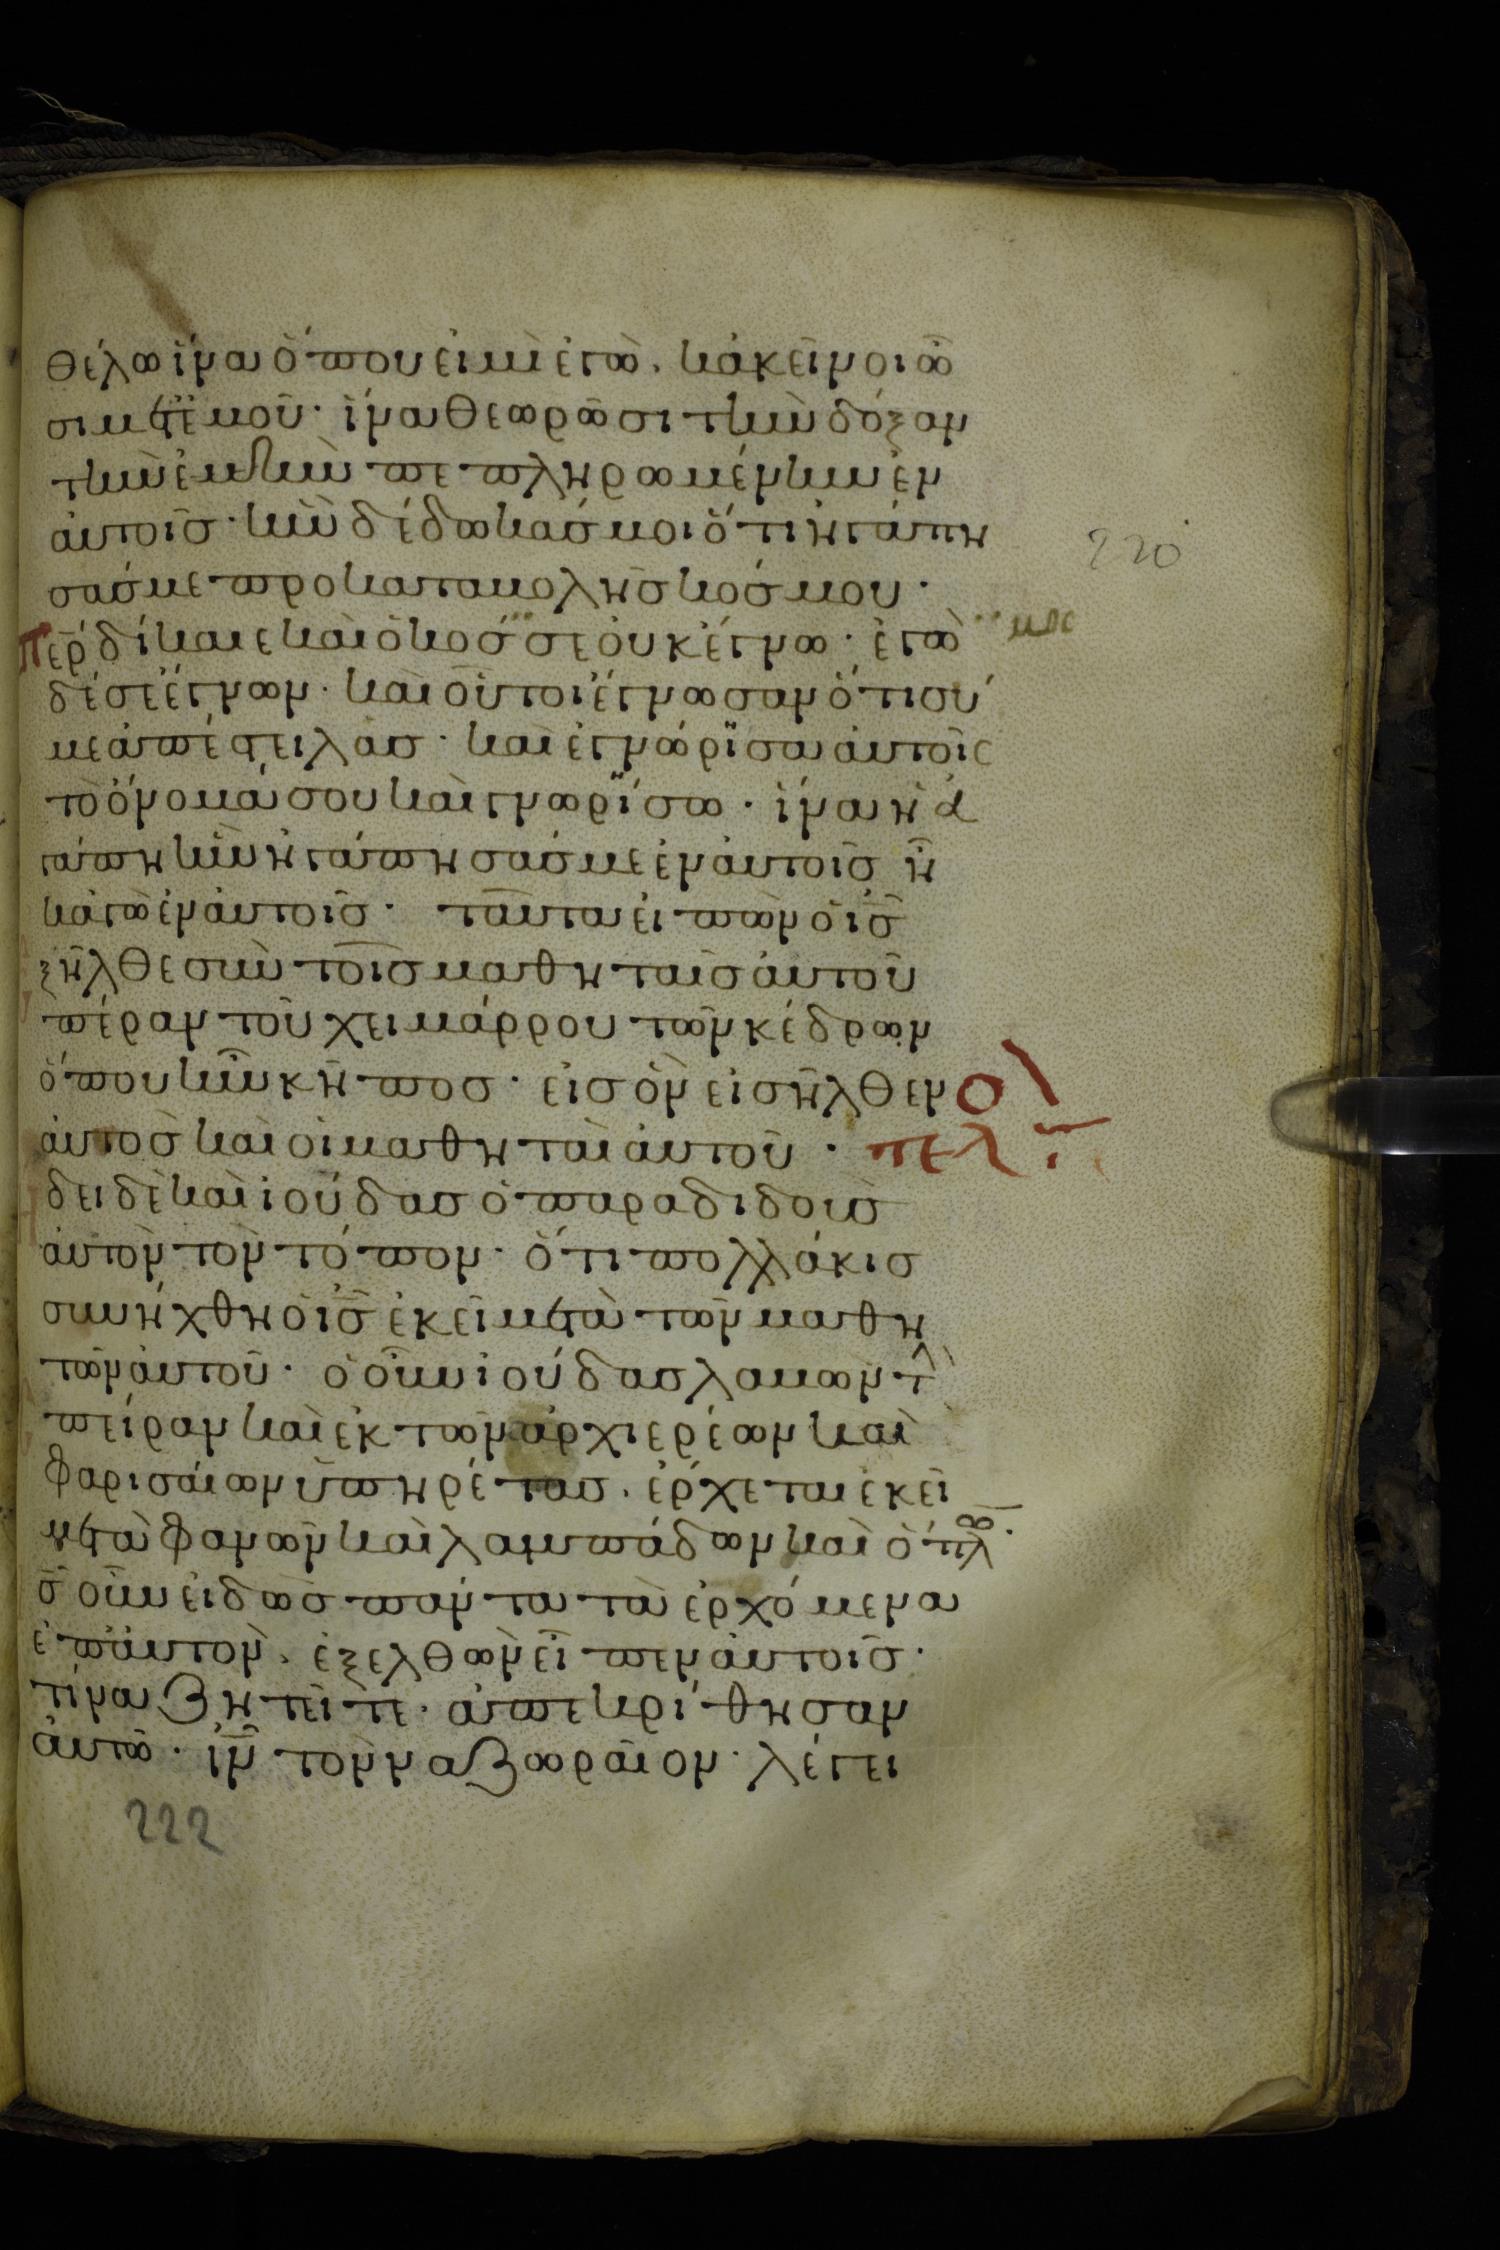 θέλω ἵνα ὅπου εἰμὶ ἐγὼ· κἀκεῖνοι ὦ
σι μετ' ἐμοῦ· ἵνα θεωρῶσι τὴν δόξαν
τὴν ἐμὴν πεπληρωμένην ἐν
ἀυτοῖς· ἣν δέδωκάσ μοι ὅτι ἠγάπη
σάσ με προ καταβολῆσ κόσμου·
περ δίκαιε καὶ ὁ κόσμοσ σε ὀυκ ἔγνω· ἐγὼ
δέ σε ἔγνων· καὶ οὗτοι ἔγνωσαν ὅτι σύ
με ἀπέστειλασ· καὶ ἐγνώρϊσα ἀυτοῖς
τὸ ὄνομά σου καὶ γνωρΐσω· ἵνα ἡ ἀ
γάπη ἣν ἠγάπησάσ με ἐν ἀυτοῖσ ἦ
κἀγὼ ἐν ἀυτοῖσ· ταῦτα ἐιπὼν ὁ ισ
ξῆλθε σὺν τοῖσ μαθηταῖσ ἀυτοῦ
πέραν τοῦ χειμάρρου τῶν κέδρων
ὅπου ἦν κῆποσ· εἰσ ὃν εἰσῆλθεν
ἀυτὸσ καὶ οἱ μαθηταὶ ἀυτοῦ· τελ
δει δὲ καὶ ἰούδασ ὁ παραδιδοὺσ
ἀυτὸν τὸν τόπον· ὅτι πολλάκισ
συνήχθη ὁ ισ ἐκεῖ μετὰ τῶν μαθη
τῶν ἀυτοῦ· ὁ οὖν ἰούδασ λαβὼν τ
πείραν καὶ ἐκ τῶν ἀρχιερέων καὶ
φαρισάιων ὑπηρέτασ· ἐρχεται ἐκεῖ
μετὰ φανῶν καὶ λαμπάδων καὶ ὅπλ
σ οὖν ἐιδὼσ πάντα τὰ ἐρχόμενα
ἐπ' ἀυτὸν· ἐξελθὼν εἶπεν ἀυτοῖσ·
τίνα ζητεῖτε· ἀπεκρίθησαν
ἀυτῶ· ιν τὸν ναζωραῖον· λέγει
220
222